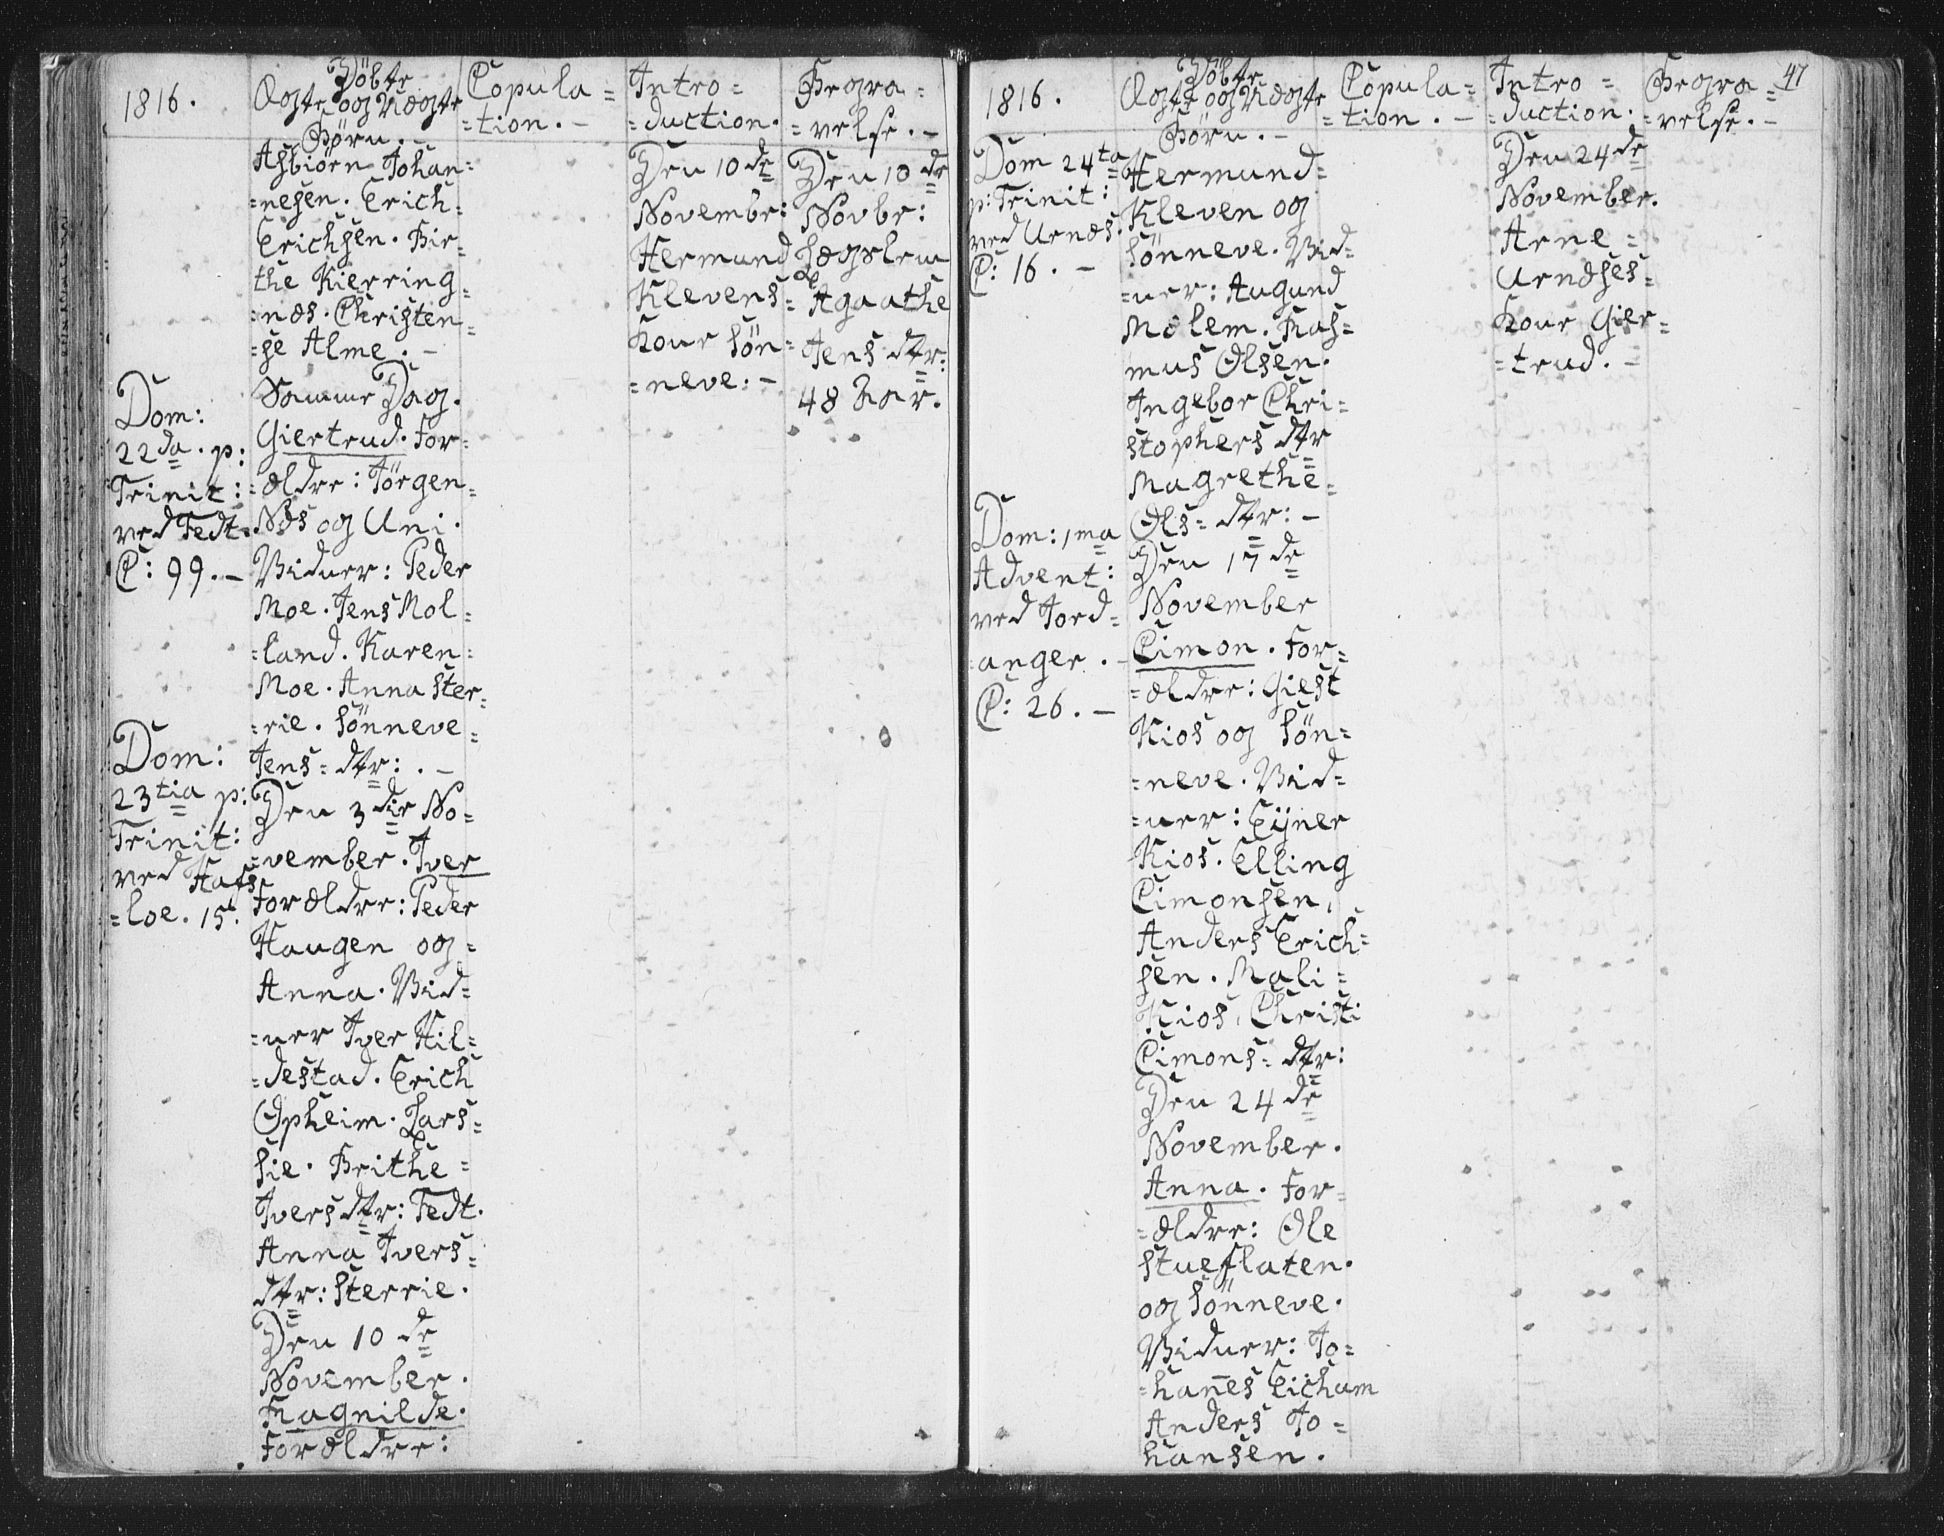 1816.
Döbte
Ægte og Uægte
Börn.
Copula=
=tion. -
Intro=
=duction.
Begra=
=velse. -
Dom:
22da. p:
Trinit:
ved Fedt.
C: 99. -
Dom:
23tia p:
Trinit:
ved Hafs
=loe. 15.
Asbiörn Johan=
=nesen. Erich=
Erichsen. Bir=
the Kierring=
=næs. Christen=
=se Alme. -
Samme Dag.
Giertrud. For=
=ældre: Törgen=
Næs og Uni.
Vidner: Peder
Moe. Jens Mol=
=land. Karen=
Moe. Anna Ster=
=rie. Sönneve=
Jens= dtr: . -
Den 3die No=
=vember. Iver
Forældre: Peder
Haugen og=
Anna. Vid=
=ner Iver Hil=
=destad. Erich
Opheim. Lars=
Lie. Brithe=
Ivers dtr: Fedt.
Anna Ivers=
dtr: Sterrie.
Den 10de
November.
Ragnilde.
Forældre:
Den 10de
Novembr:
Hermund
Klevens=
Kone Sön=
=neve: -
Den 10de
Novbr:
Lægslem
Agaathe
Jens dtr:
48 Aar.
47
1816.
Döbte
Ægte og Uægte
Börn. -
Copula=
=tion. -
Intro=
=duction.
Begra=
=velse. -
Dom 24ta
p: Trinit:
ved Urnæs.
C: 16. -
Dom: 1ma
Advent:
ved Jord=
anger. -
C: 26. -
Hermund=
Kleven og
Sönneve. Vid=
=ner: Augund
Molem. Ras=
mus Olsen.
Ingebor Chri=
stophers dtr
Magrethe=
Ols= dtr: -
Den 17de
November
Cimon. For=
=ældre: Giest
Kios og Sön=
=neve. Vid=
=ner: Eijner
Kios. Elling
Cimonsen,
Anders Erich=
sen. Mali=
Kios, Christi
Cimons= dtr:
Den 24de
November.
Anna. For=
=ældre: Ole
Stueflaten.
og Sönneve.
Vidner: Jo=
=hañes Eicham
Anders Jo=
hansen.
Den 24de
November.
Arne=
Urndses=
Kone Gier=
=trud. -